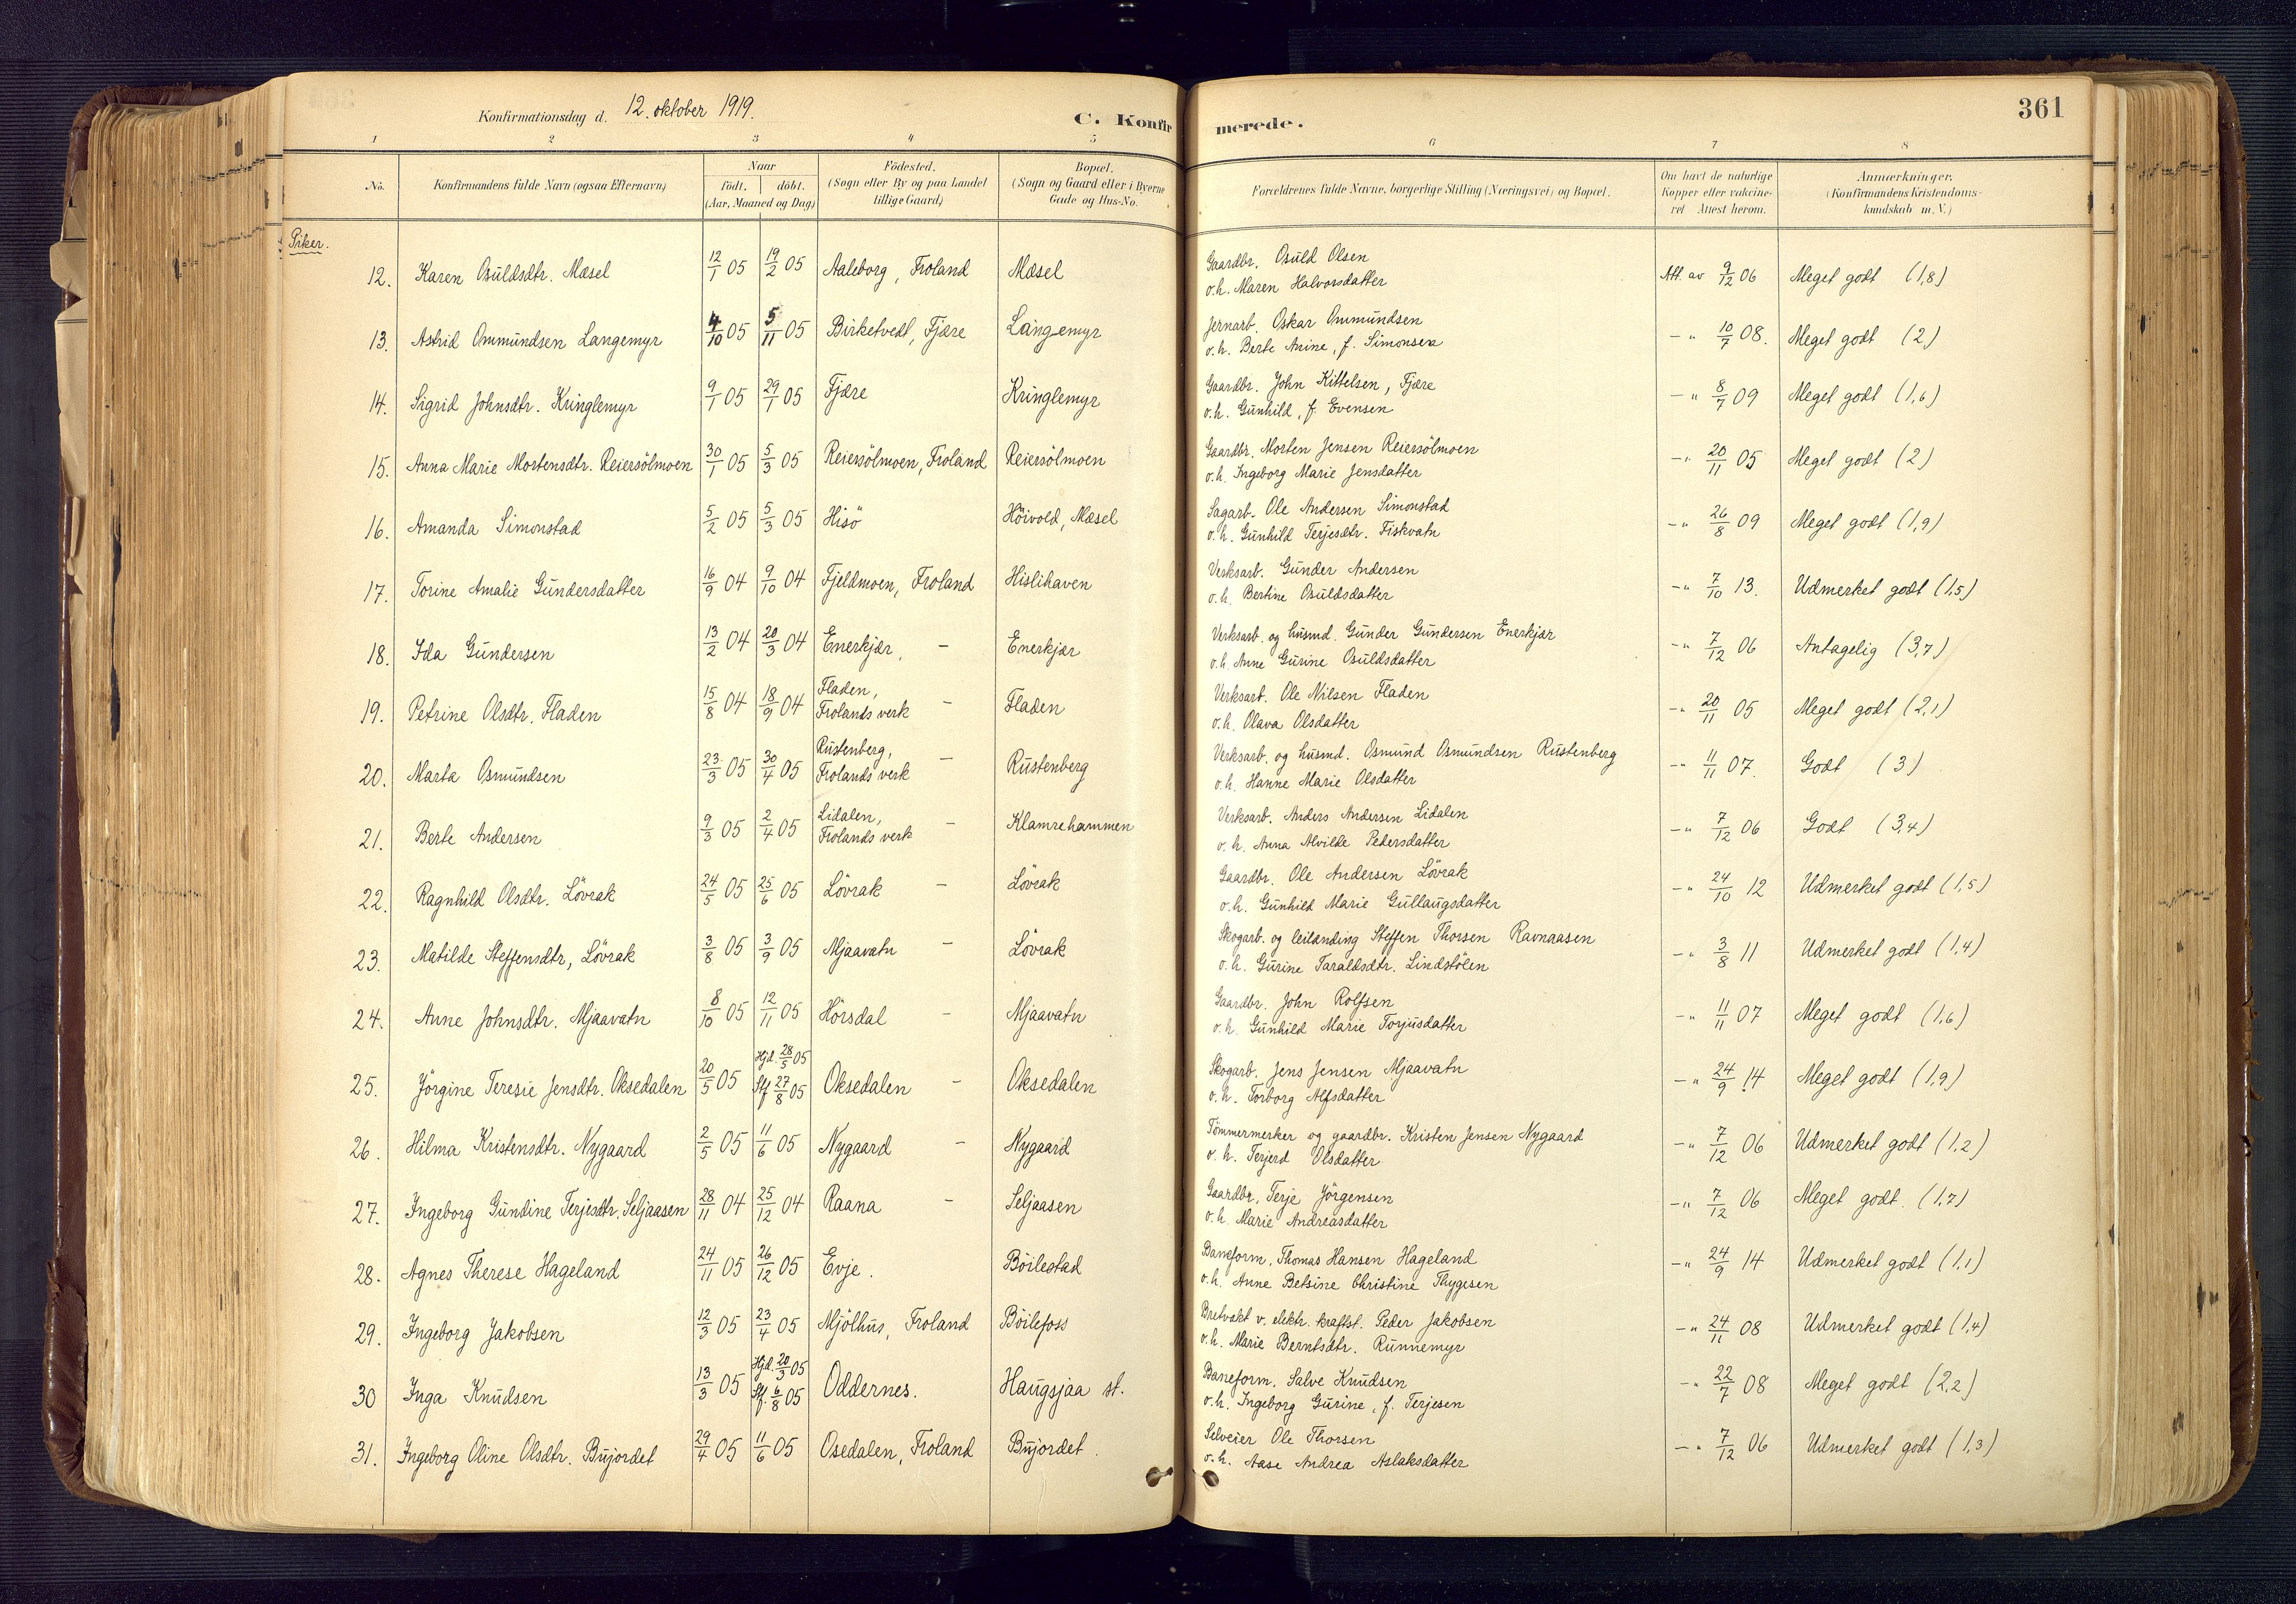 361
Konfirmationsdag d. 12. oktober 1919.
C. Konfirmerede.
1 2 3 4 5 6 7 8
No. Konfirmandens fulde Navn (ogsaa Efternavn) Naar födt. döbt. (Aar, Maaned og Dag) Födested. (Sogn eller By og paa Landet tillige Gaard) Bopæl. (Sogn og Gaard eller i Byerne Gade og Hus-No. Forældrenes fulde Navne, borgerlige Stilling (Næringsvei) og Bopæl. Om havt de naturlige Kopper eller vaccineret Attest herom. Anmærkninger. (Konfirmandens Kristendomskundskab m. V.)
Piker.
12. Karen Osuldsdtr. Mæsel 12/1 05 19/2 05 Aaleborg, Froland Mæsel Gaardbr. Osuld Olsen Att. av 9/12 06 Meget godt (1,8)
o.h. Maren Halvorsdatter
13. Astrid Ommundsen Langemyr 4/10 05 5/11 05 Birketvedt, Fjære Langemyr Jernarb. Oskar Ommundsen -„ 10/7 08. Meget godt (2)
o.h. Berte Anine, f. Simonsen
14. Sigrid Johnsdtr. Kringlemyr 9/1 05 29/1 05 Fjære Kringlemyr Gaardbr. John Kittelsen, Fjære -„ 8/7 09 Meget godt (1,6)
o.h. Gunhild, f. Evensen
15. Anna Marie Mortensdtr. Reiersölmoen 30/1 05 5/3 05 Reiersölmoen, Froland Reiersölmoen Gaardbr. Morten Jensen Reiersölmoen -„ 20/11 05 Meget godt (2)
o.h. Ingeborg Marie Jensdatter
16. Amanda Simonstad 5/2 05 5/3 05 Hisö Höivold, Mæsel Sagarb. Ole Andersen Simonstad -„ 26/8 09 Meget godt (1,9)
o.h. Gunhild Terjesdtr. Fiskvatn
17. Torine Amalie Gundersdatter 16/9 04 9/10 04 Fjeldmoen, Froland Hislihaven Verksarb. Gunder Andersen -„ 7/10 13. Udmerket godt (1,5)
o.h. Bertine Osuldsdatter
18. Ida Gundersen 13/2 04 20/3 04 Enerkjær, - Enerkjær Verksarb. og husmd. Gunder Gundersen Enerkjær -„ 7/12 06 Antagelig (3,7)
o.h. Anne Gurine Osuldsdatter
19. Petrine Olsdtr. Fladen 15/8 04 18/9 04 Fladen, Frolands verk - Fladen Verksarb. Ole Nilsen Fladen -„ 20/11 05 Meget godt (2,1)
o.h. Olava Olsdatter
20. Marta Osmundsen 23/3 05 30/4 05 Rustenberg, Frolands verk - Rustenberg Verksarb. og husmd. Osmund Osmundsen Rustenberg -„ 11/11 07. Godt (3)
o.h. Hanne Marie Olsdatter
21. Berte Andersen 9/3 05 2/4 05 Lidalen, Frolands verk - Klamrehammen Verksarb. Anders Andersen Lidalen -„ 7/12 06 Godt (3,4)
o.h. Anna Alvilde Pedersdatter
22. Ragnhild Olsdtr. Lövrak 24/5 05 25/6 05 Lövrak - Lövrak Gaardbr. Ole Andersen Lövrak -„ 24/10 12 Udmerket godt (1,5)
o.h. Gunhild Marie Gullaugsdatter
23. Matilde Steffensdtr, Lövrak 3/8 05 3/9 05 Mjaavatn - Lövrak Skogarb. og leilænding Steffen Thorsen Ravnaasen -„ 3/8 11 Udmerket godt (1,4)
o.h. Gurine Taraldsdtr. Lindstölen
24. Anne Johnsdtr. Mjaavatn 8/10 05 12/11 05 Hörsdal - Mjaavatn Gaardbr. John Rolfsen -„ 11/11 07 Meget godt (1,6)
o.h. Gunhild Marie Torjusdatter
25. Jörgine Teresie Jensdtr. Oksedalen 20/5 05 Hjd. 28/5 05 Stf. 27/8 05 Oksedalen - Oksedalen Skogarb. Jens Jensen Mjaavatn -„ 24/9 14 Meget godt (1,9)
o.h. Torborg Alfsdatter
26. Hilma Kristensdtr. Nygaard 2/5 05 11/6 05 Nygaard - Nygaard Tömmermerker og gaardbr. Kristen Jensen Nygaard -„ 7/12 06 Udmerket godt (1,2)
o.h. Terjerd Olsdatter
27. Ingeborg Gundine Terjesdtr. Seljaasen 28/11 04 25/12 04 Raana - Seljaasen Gaardbr. Terje Jörgensen -„ 7/12 06 Meget godt. (1,7)
o.h. Marie Andreasdatter
28. Agnes Therese Hageland 24/11 05 26/12 05 Evje. Böilestad Baneform. Thomas Hansen Hageland -„ 24/9 14 Udmerket godt (1,1)
o.h. Anne Betsine Christine Thygesen
29. Ingeborg Jakobsen 12/3 05 23/4 05 Mjölhus, Froland Böilefoss Bretvakt v. elektr. kraftst. Peder Jakobsen -„ 24/11 08 Udmerket godt (1,4)
o.h. Marie Berntsdtr. Runnemyr
30 Inga Knudsen 13/3 05 Hjd. 20/3 05 Stf. 6/8 05 Oddernes. Haugsjaa st. Baneform. Salve Knudsen -„ 22/7 08 Meget godt (2,2)
o.h. Ingeborg Gurine, f. Terjesen
31. Ingeborg Oline Olsdtr. Bujordet 29/4 05 11/6 05 Osedalen, Froland Bujordet. Selveier Ole Thorsen -„ 7/12 06 Udmerket godt (1,3)
o.h. Aase Andrea Aslaksdatter